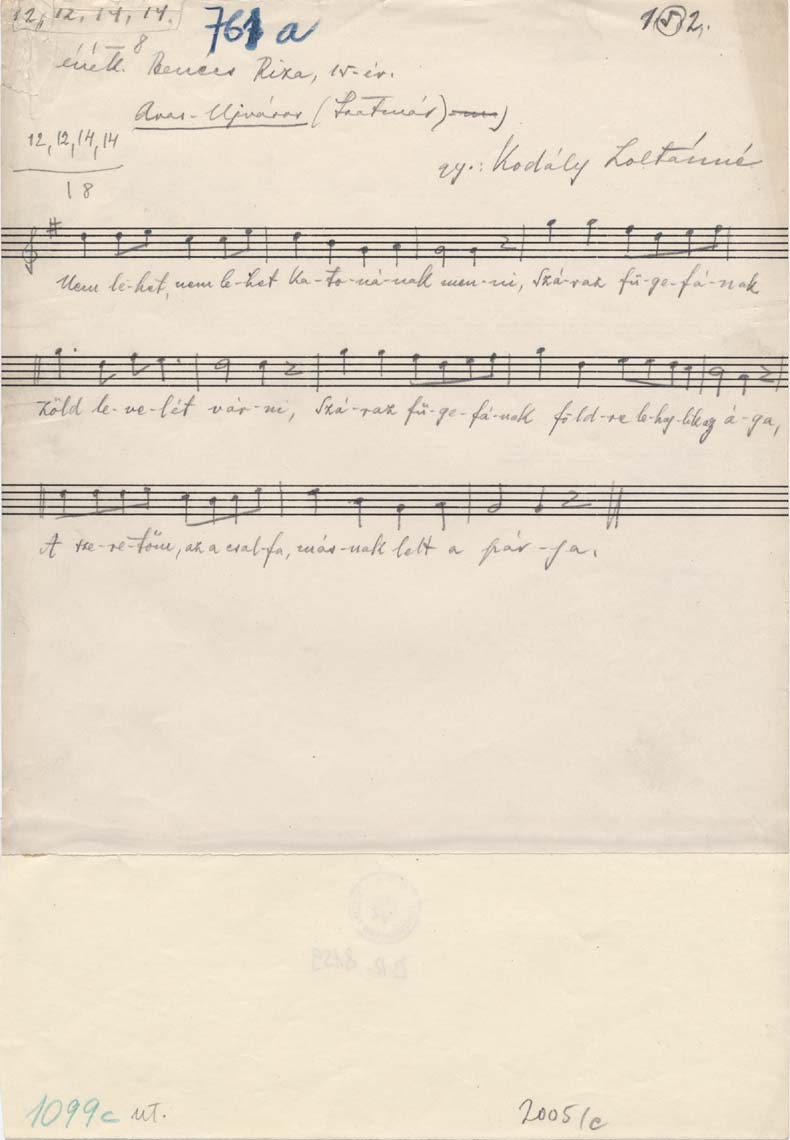 12, 12, 14, 14.
8
761 a
1 5 2.
énék. Bencés Riza, 15-év.
Avas-Ujváros (Szatmár)
12, 12, 14, 14
18
gy.: Kodály Zoltánné
Nem le-het, nem le-het Ka-to-ná-nak men-ni, Szá-raz fü-ge-fá-nak
Zöld le-ve-lét vár-ni, Szá-raz fü-ge-fá-nak föld-re le-haj-lik az á-ga,
A sze-re-tőm, az a csal-fa, más-nak lett a pár-ja.
1099c ut.
2005/c